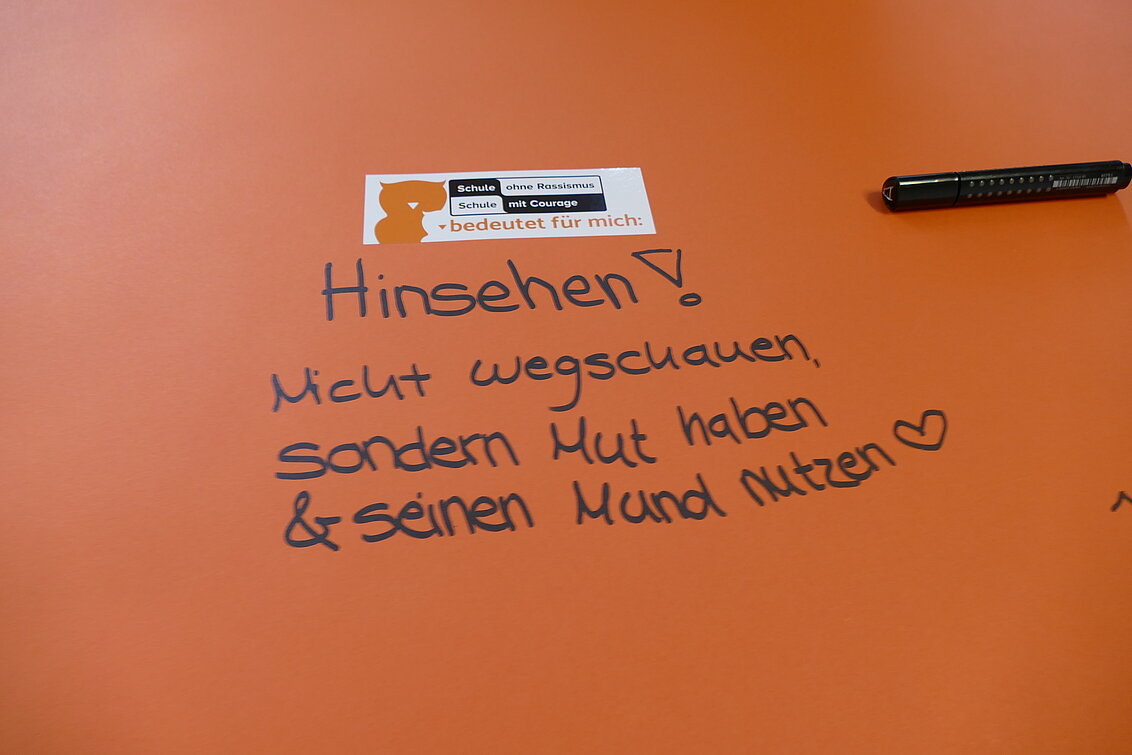 Schule ohne Rassismus
Schule mit Courage
bedeutet für mich:
Hinsehen!
Nicht wegschauen,
sondern Mut haben
& seinen Mund nutzen ♡